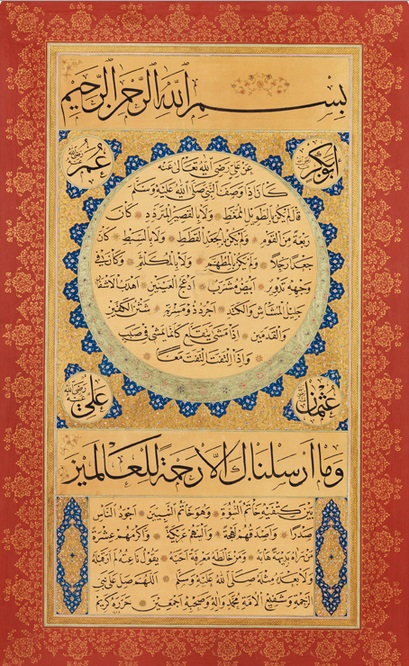 بسم الله الرحمن الرحيم
ابوبكر رضي الله عنه
عمر رضي الله عنه
عن علي رضي الله تعالى عنه
كان اذا وصف النبي صلى الله عليه وسلم
قال لم يكن بالطويل الممغط ولا بالقصير المتردد كان
ربعة من القوم ولم يكن بالجعد القطط ولا بالسبط كان
جعدا رجلا ولم يكن بالمطهم ولا بالمكلثم وكان في
وجهه تدوير ابيض مشرب ادعج العينين اهدب الاشفار
جليل المشاش والكتد اجرد ذو مسربة شثن الكفين
والقدمين اذا مشى يتقلع كانما يمشي في صبب
واذا التفت التفت معا
عثمان رضي الله عنه
علي رضي الله عنه
وما ارسلناك الا رحمة للعالمين
بين كتفيه خاتم النبوة وهو خاتم النبيين اجود الناس
صدرا واصدقهم لهجة والينهم عريكة واكرمهم عشرة
من رآه بديهة هابه ومن خالطه معرفة احبه يقول ناعته لم ار قبله
ولا بعده مثله صلى الله عليه وسلم اللهم صل على نبي
الرحمة وشفيع الامة محمد وآله وصحبه اجمعين حرره كريم